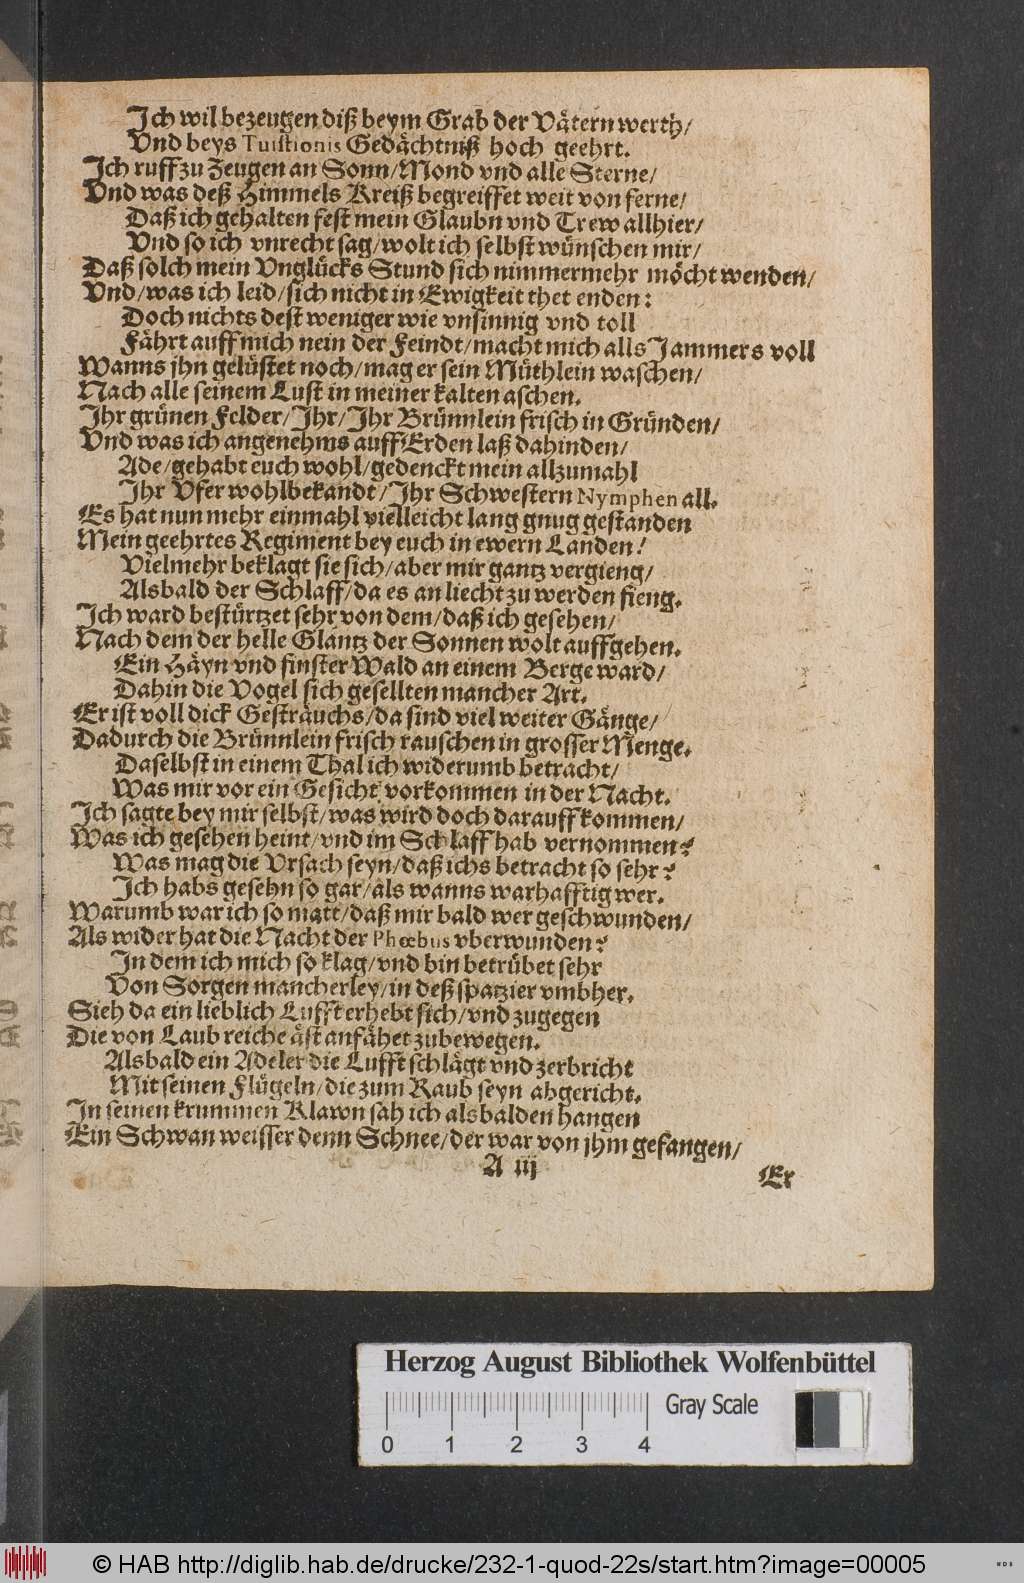 Ich wil bezeugen diß beym Grab der Vätern werth/
Vnd beys Tuistionis Gedächtniß hoch geehrt.
Ich ruff zu Zeugen an Sonn/Mond vnd alle Sterne/
Vnd was deß Himmels Kreiß begreiffet weit von ferne/
Daß ich gehalten fest mein Glaubn vnd Trew allhier/
Vnd so ich vnrecht sag/wolt ich selbst wünschen mir/
Daß solch mein Vnglücks Stund sich nimmermehr möcht wenden/
Vnd/was ich leid/sich nicht in Ewigkeit thet enden:
Doch nichts dest weniger wie vnsinnig vnd toll
Fährt auff mich nein der Feindt/macht mich alls Jammers voll
Wanns jhn gelüstet noch/mag er sein Müthlein waschen/
Nach alle seinem Lust in meiner kalten aschen.
Ihr grünen Felder/Ihr/Ihr Brünnlein frisch in Gründen/
Vnd was ich angenehms auff Erden laß dahinden/
Ade/gehabt euch wohl/gedenckt mein allzumahl
Ihr Vfer wohlbekandt/Ihr Schwestern Nymphen all.
Es hat nun mehr einmahl vielleicht lang gnug gestanden
Mein geehrtes Regiment bey euch in ewern Landen!
Vielmehr beklagt sie sich/aber mir gantz vergieng/
Alsbald der Schlaff/da es an liecht zu werden fieng.
Ich ward bestürtzet sehr von dem/daß ich gesehen/
Nach dem der helle Glantz der Sonnen wolt auffgehen.
Ein Häyn vnd finster Wald an einem Berge ward/
Dahin die Vogel sich gesellten mancher Art.
Er ist voll dick Gesträuchs/da sind viel weiter Gänge/
Dadurch die Brünnlein frisch rauschen in grosser Menge.
Daselbst in einem Thal ich widerumb betracht/
Was mir vor ein Gesicht vorkommen in der Nacht.
Ich sagte bey mir selbst/was wird doch darauff kommen/
Was ich gesehen heint/vnd im Schlaff hab vernommen?
Was mag die Vrsach seyn/daß ichs betracht so sehr?
Ich habs gesehn so gar/als wanns warhafftig wer.
Warumb war ich so matt/daß mir bald wer geschwunden/
Als wider hat die Nacht der Phœbus vberwunden?
In dem ich mich so klag/vnd bin betrübet sehr
Von Sorgen mancherley/in deß spatzier vmbher.
Sieh da ein lieblich Lufft erhebt sich/vnd zugegen
Die von Laub reiche äst anfähet zubewegen.
Alsbald ein Adeler die Lufft schlägt vnd zerbricht
Mit seinen Flügeln/die zum Raub seyn abgericht.
In seinen krummen Klawn sah ich alsbalden hangen
Ein Schwan weisser denn Schnee/der war von jhm gefangen/
A iij
Er
Herzog August Bibliothek Wolfenbüttel
Gray Scale
0 1 2 3 4
© HAB http://diglib.hab.de/drucke/232-1-quod-22s/start.htm?image=00005